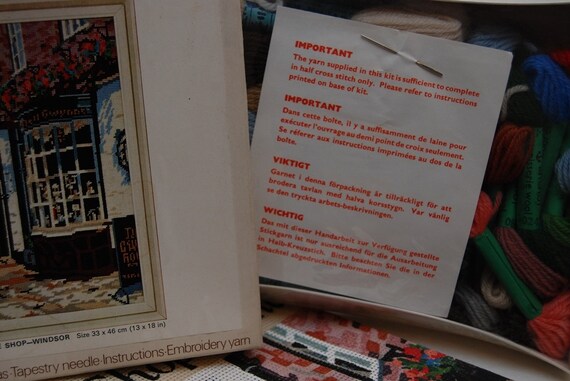 E SHOP—WINDSOR Size 33 x 46 cm (13 x 18 in)
as·Tapestry needle·Instructions·Embroidery yarn
IMPORTANT
The yarn supplied in this kit is sufficient to complete
in half cross stitch only. Please refer to instructions
printed on base of kit.
IMPORTANT
Dans cette boîte, il y a suffisamment de laine pour
exécuter l'ouvrage au demi point de croix seulement.
Se référer aux instructions imprimées au dos de la
boîte.
VIKTIGT
Garnet i denna förpackning är tillräckligt för att
brodera tavlan med halva korsstygn. Var vänlig
se den tryckta arbets-beskrivningen.
WICHTIG
Das mit dieser Handarbeit zur Verfügung gestellte
Stickgarn ist nur ausreichend für die Ausarbeitung
in Halb-Kreuzstich. Bitte beachten Sie die in der
Schachtel abgedruckten Informationen.